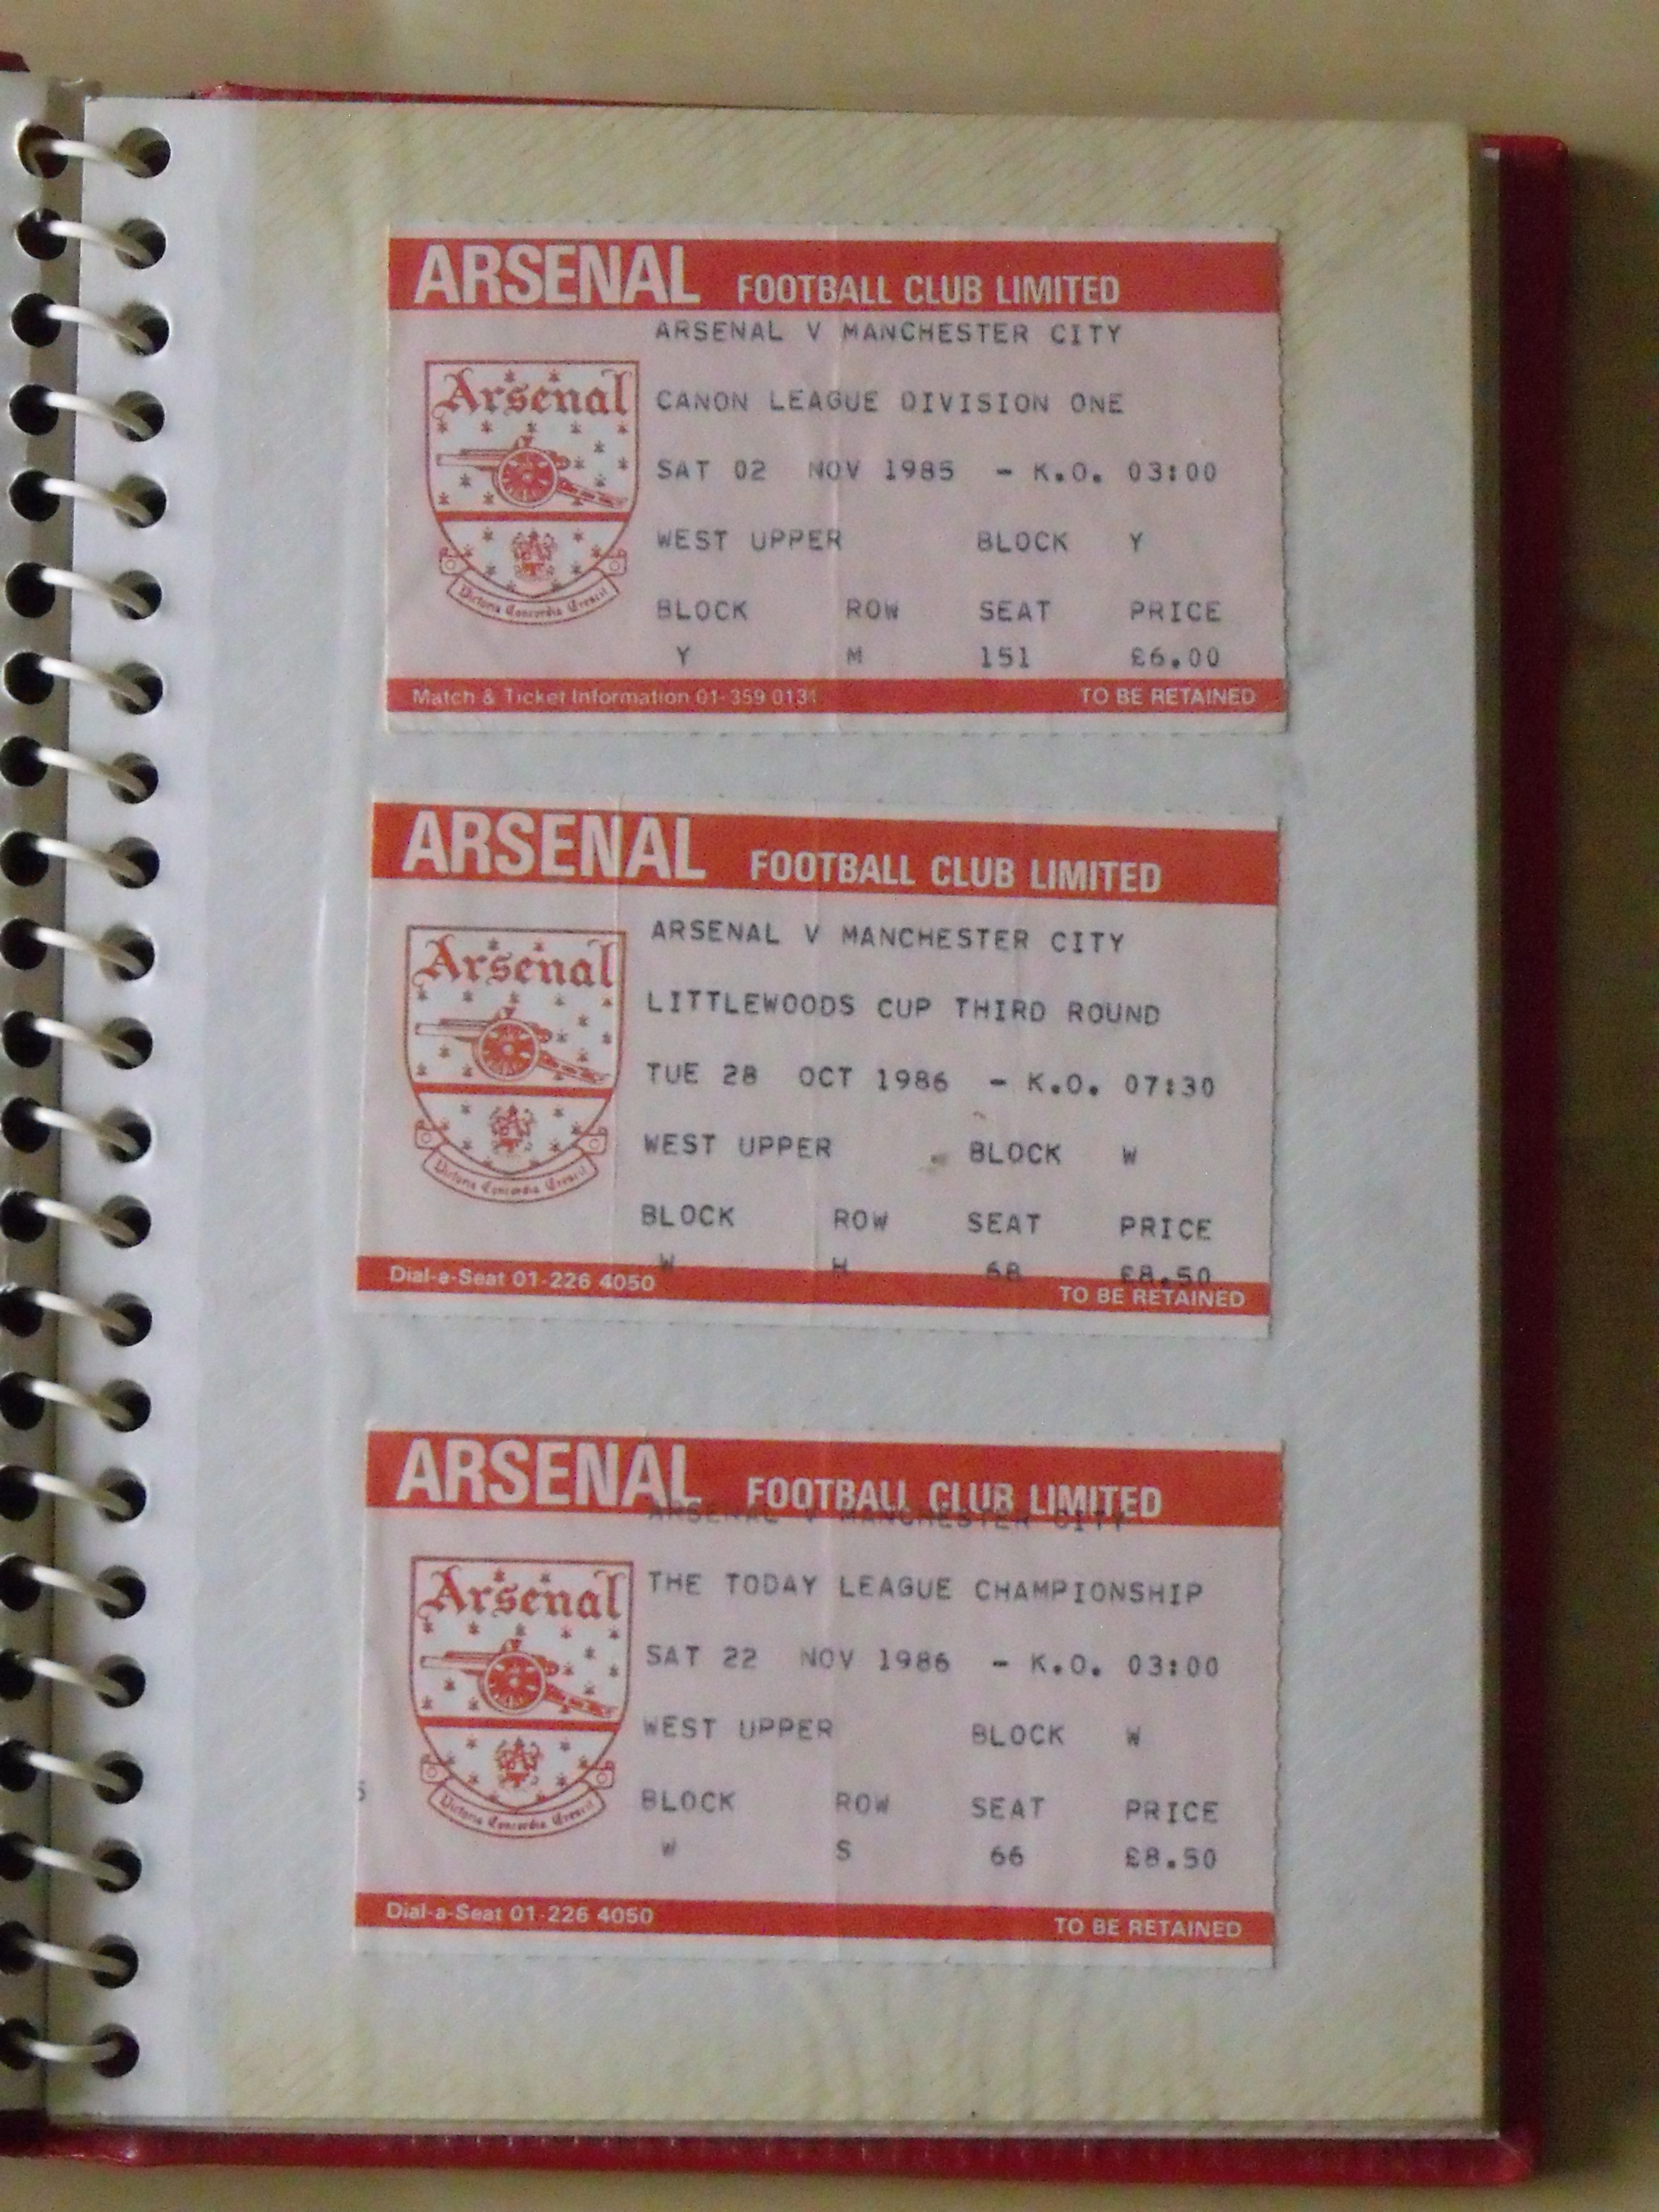 ARSENAL FOOTBALL CLUB LIMITED
ARSENAL V MANCHESTER CITY
Arsenal
CANON LEAGUE DIVISION ONE
SAT 02 NOV 1985 - K.O. 03:00
WEST UPPER BLOCK Y
Victoria Concordia Crescit
BLOCK ROW SEAT PRICE
Y M 151 £6.00
Match & Ticket Information 01-359 0131 TO BE RETAINED
ARSENAL FOOTBALL CLUB LIMITED
ARSENAL V MANCHESTER CITY
Arsenal
LITTLEWOODS CUP THIRD ROUND
TUE 28 OCT 1986 - K.O. 07:30
WEST UPPER BLOCK W
Victoria Concordia Crescit
BLOCK ROW SEAT PRICE
W H 68 £8.50
Dial-a-Seat 01-226 4050 TO BE RETAINED
ARSENAL FOOTBALL CLUB LIMITED
ARSENAL V MANCHESTER CITY
Arsenal
THE TODAY LEAGUE CHAMPIONSHIP
SAT 22 NOV 1986 - K.O. 03:00
WEST UPPER BLOCK W
Victoria Concordia Crescit
BLOCK ROW SEAT PRICE
W S 66 £8.50
Dial-a-Seat 01-226 4050 TO BE RETAINED